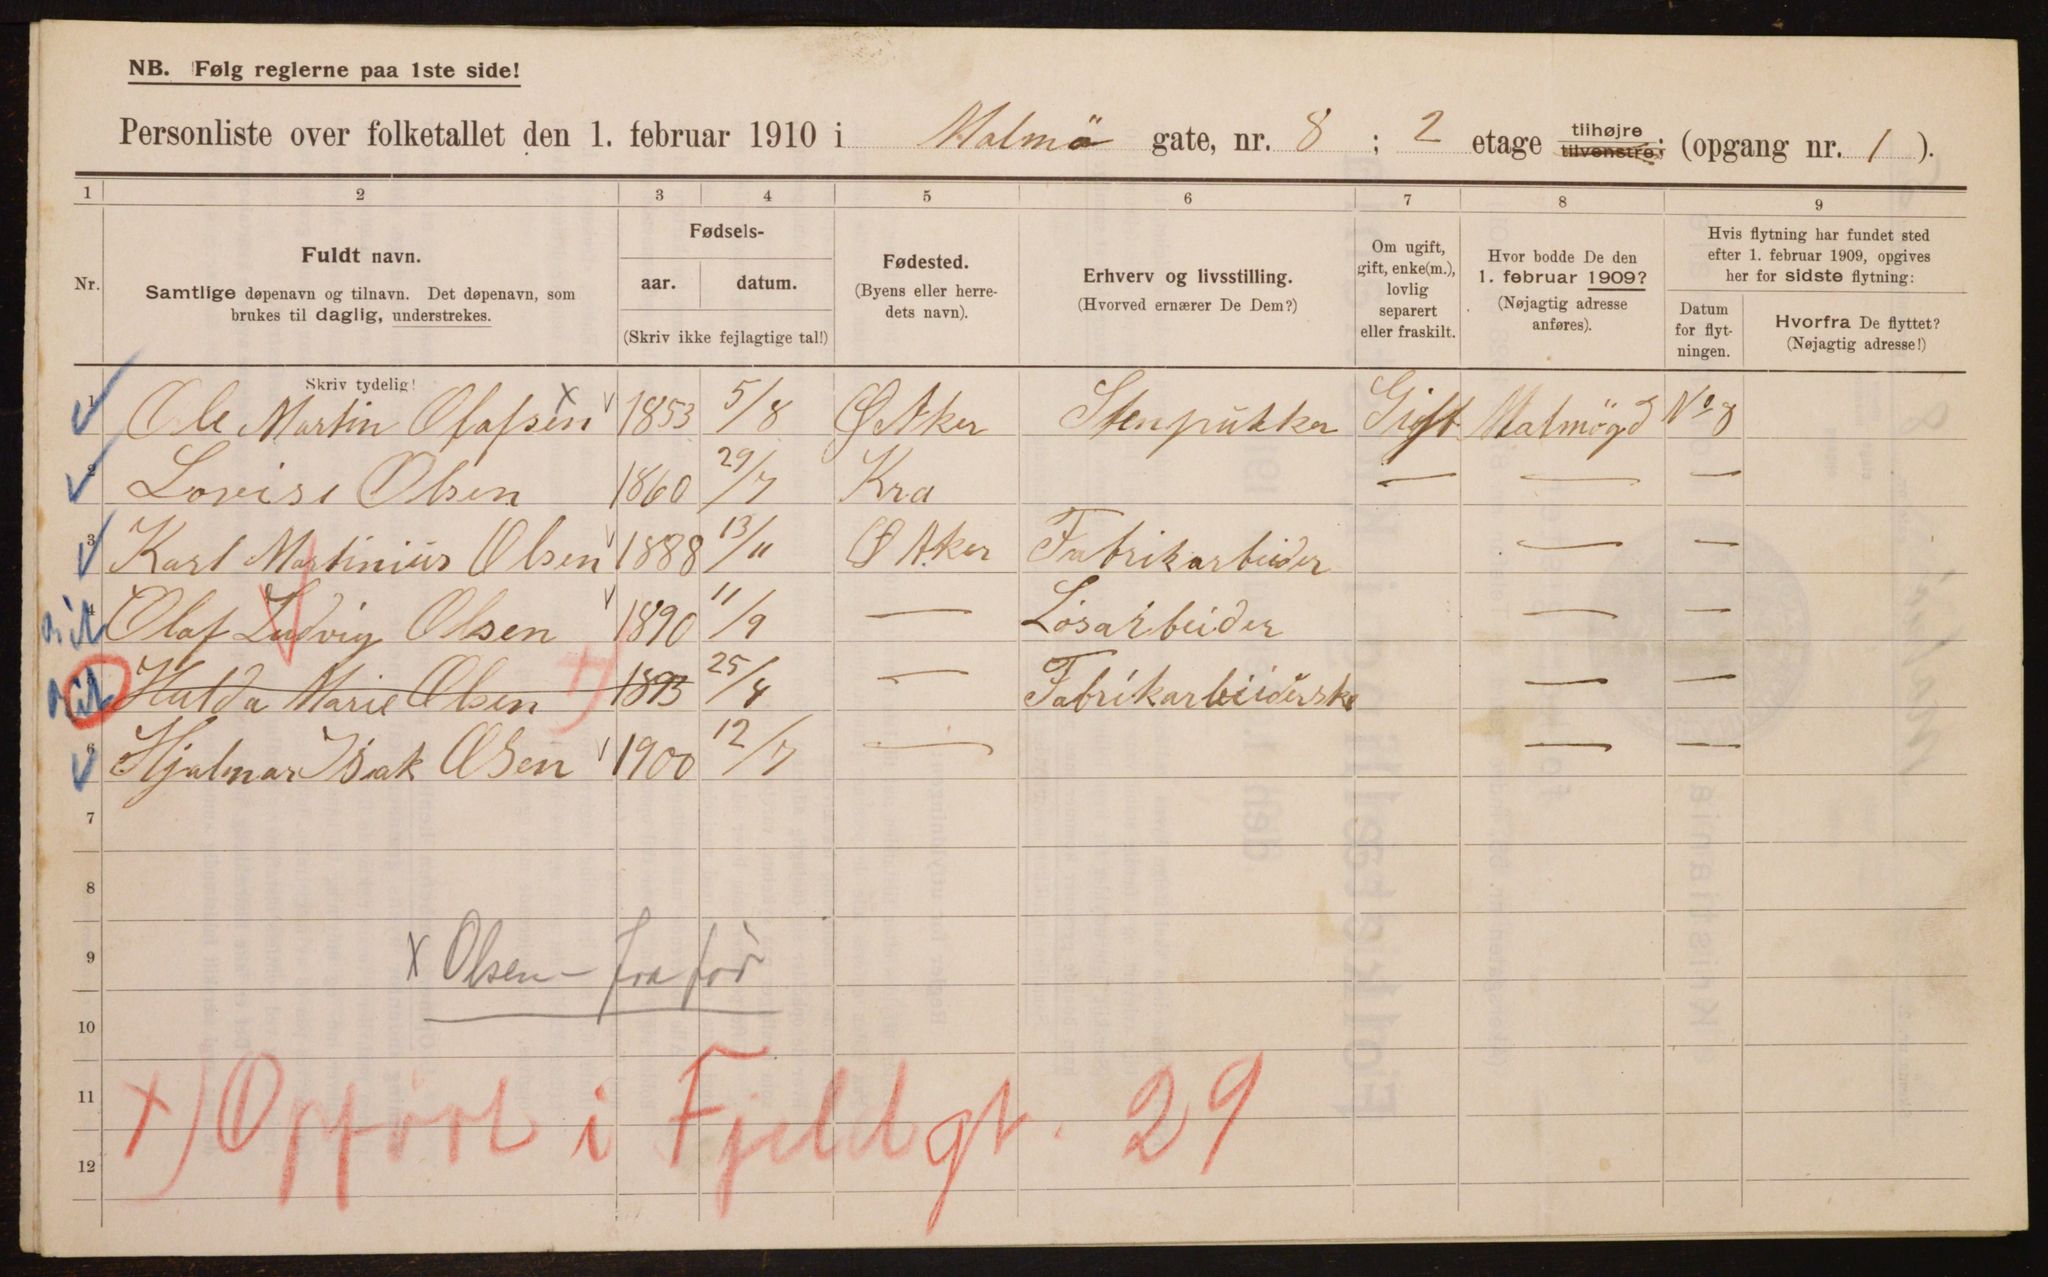 NB. Følg reglerne paa 1ste side!
Personliste over folketallet den 1. februar 1910 i Malmö gate, nr. 8 ; 2 etage tilhøjre tilvenstre; (opgang nr. 1 ).
1 2 3 4 5 6 7 8 9
Nr.
Fuldt navn.
Samtlige døpenavn og tilnavn. Det døpenavn, som
brukes til daglig, understrekes.
Fødsels-
aar. datum.
(Skriv ikke fejlagtige tal!)
Fødested.
(Byens eller herre-
dets navn).
Erhverv og livsstilling.
(Hvorved ernærer De Dem?)
Om ugift,
gift, enke(m.),
lovlig
separert
eller fraskilt.
Hvor bodde De den
1. februar 1909?
(Nøjagtig adresse
anføres).
Hvis flytning har fundet sted
efter 1. februar 1909, opgives
her for sidste flytning:
Datum
for flyt-
ningen.
Hvorfra De flyttet?
(Nøjagtig adresse!)
Skriv tydelig!
1 Ole Martin Olafsen x 1853 5/8 Ø Aker Stenpukker Gift Malmögd No 8
2 Lovise Olsen 1860 29/7 Kra — — —
3 Karl Martinius Olsen 1888 13/11 Ø Aker Fabrikarbeider — —
4 Olaf Ludvig Olsen 1890 11/9 — Løsarbeider — —
5 Hulda Marie Olsen x) 1893 25/4 — Fabrikarbeiderske — —
6 Hjalmar Isak Olsen 1900 12/7 — — —
7
8
9
x Olsen - fra før
10
11
x) Opført i Fjeldgt. 29
12